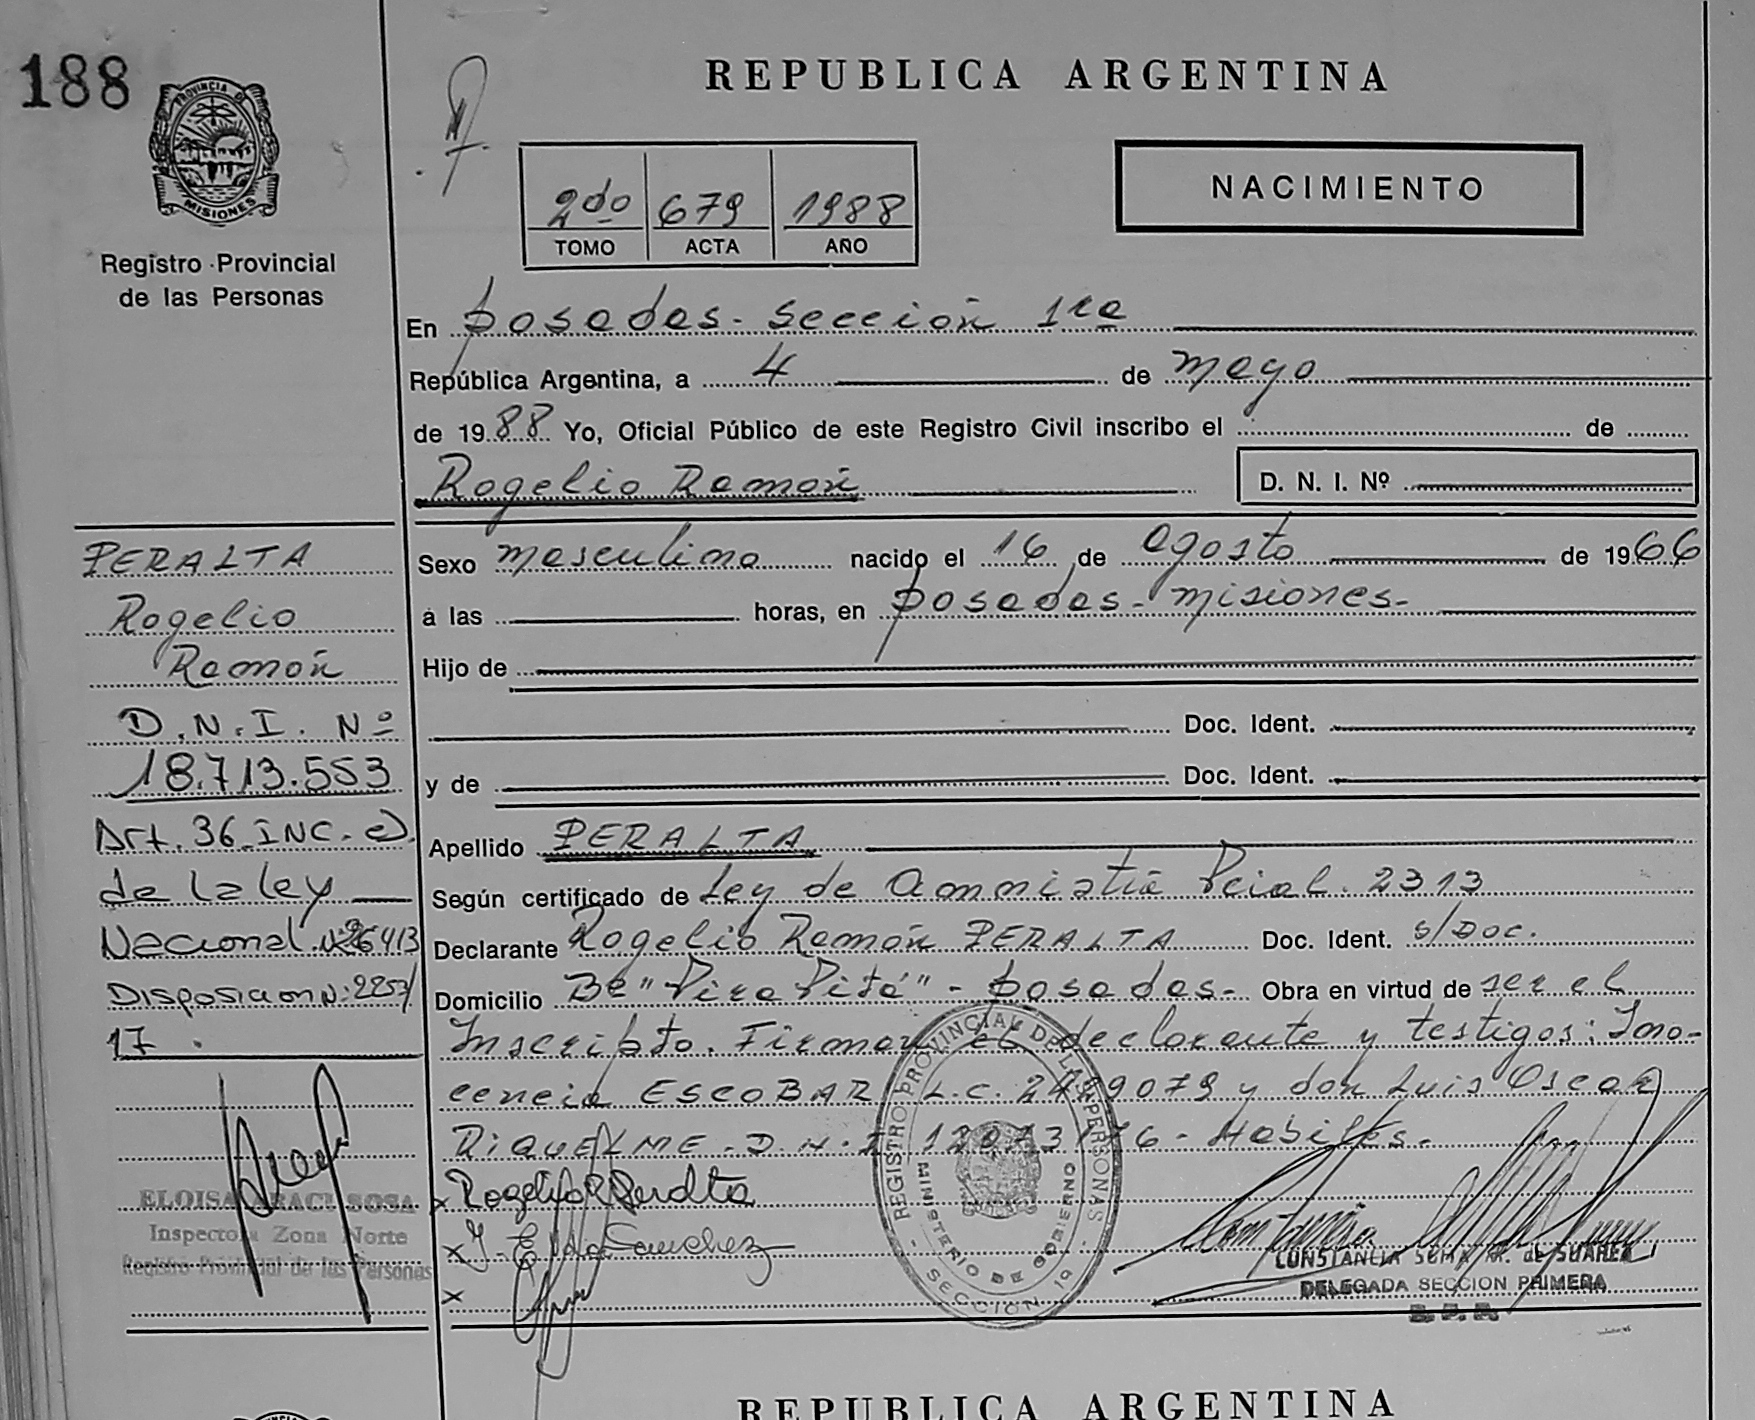 188
PROVINCIA DE
MISIONES
Registro Provincial
de las Personas
REPUBLICA ARGENTINA
2do 679 1988
TOMO ACTA AÑO
NACIMIENTO
En Posadas - Sección 1ra
República Argentina, a 4 de mayo
de 1988 Yo, Oficial Público de este Registro Civil inscribo el de
Rogelio Ramón
D. N. I. Nº
PERALTA
Rogelio
Ramón
D.N.I. Nº
18.713.553
Art. 36 INC. e)
de la ley
Nacional Nº 26413
Disposicion Nº: 2257/
17.
ELOISA ARACI SOSA
Inspectora Zona Norte
Registro Provincial de las Personas
Sexo masculino nacido el 16 de agosto de 1966
a las horas, en Posadas - misiones -
Hijo de
Doc. Ident.
y de Doc. Ident.
Apellido PERALTA
Según certificado de Ley de Amnistía Pcial. 2313
Declarante Rogelio Ramón PERALTA Doc. Ident. s/Doc.
Domicilio Bº "Pira Pitá" - Posadas - Obra en virtud de ser el
Inscripto. Firman el declarante y testigos: Ino-
cencia ESCOBAR L.C. y don Luis Oscar
RIQUELME - D.N.I. - Hábiles -
x Rogelio R Peralta
x Sanchez
x
REGISTRO PROVINCIAL DE LAS PERSONAS
MINISTERIO DE GOBIERNO
SECCION 1ª
CONSTANCIA de SUAREZ
DELEGADA SECCION PRIMERA
R. P. P.
REPUBLICA ARGENTINA